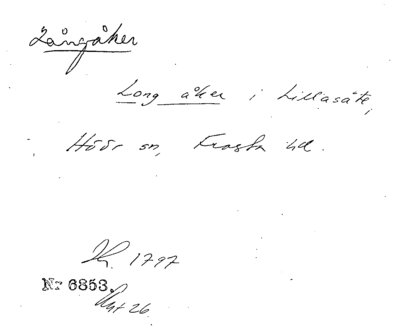 Långåker
Long åker i Lillasäte,
Höör sn, Frosta hd.
1797
Nr 6853.
Akt 26.